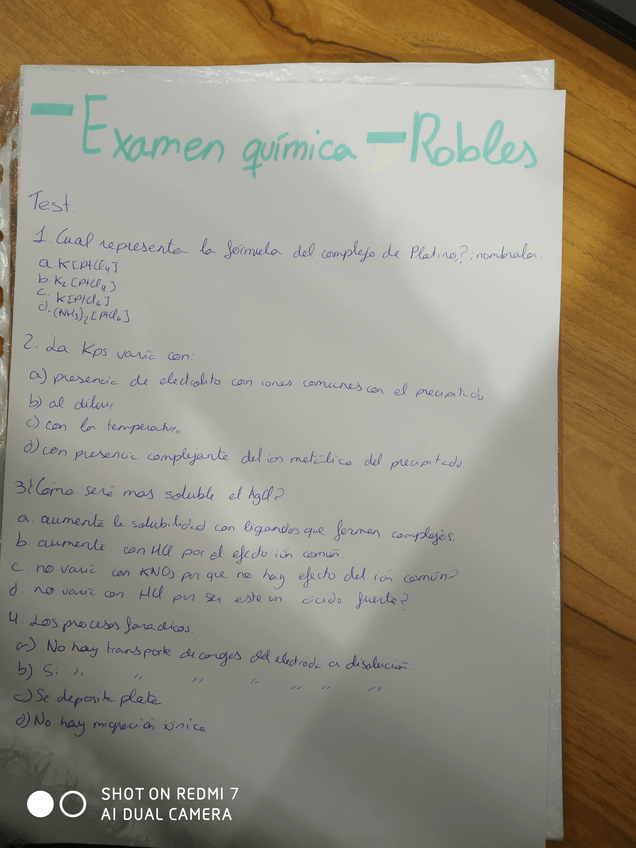 - Examen química - Robles
Test:
1. Cual representa la fórmula del complejo de Platino?; nombralo.
a. K[PtCl4]
b. K2 [PtCl4]
c. K[PtCl6]
d. (NH3)2 [PtCl6]
2. La Kps varia con:
a) presencia de electrolito con iones comunes con el precipitado
b) al diluir
c) con la temperatura
d) con presencia complejante del ion metálico del precipitado.
3. ¿Cómo será mas soluble el AgCl?
a. aumenta la solubilidad con ligandos que formen complejos.
b. aumenta con HCl por el efecto ión común.
c. no varia con KNO3 por que no hay efecto del ión común?
d. no varia con HCl por ser este un ácido fuerte?
4. Los procesos faradicos.
a) No hay transporte de cargas del electrodo a disolución.
b) Si " " " " " " "
c) Se deposita plata
d) No hay migración iónica
SHOT ON REDMI 7
AI DUAL CAMERA